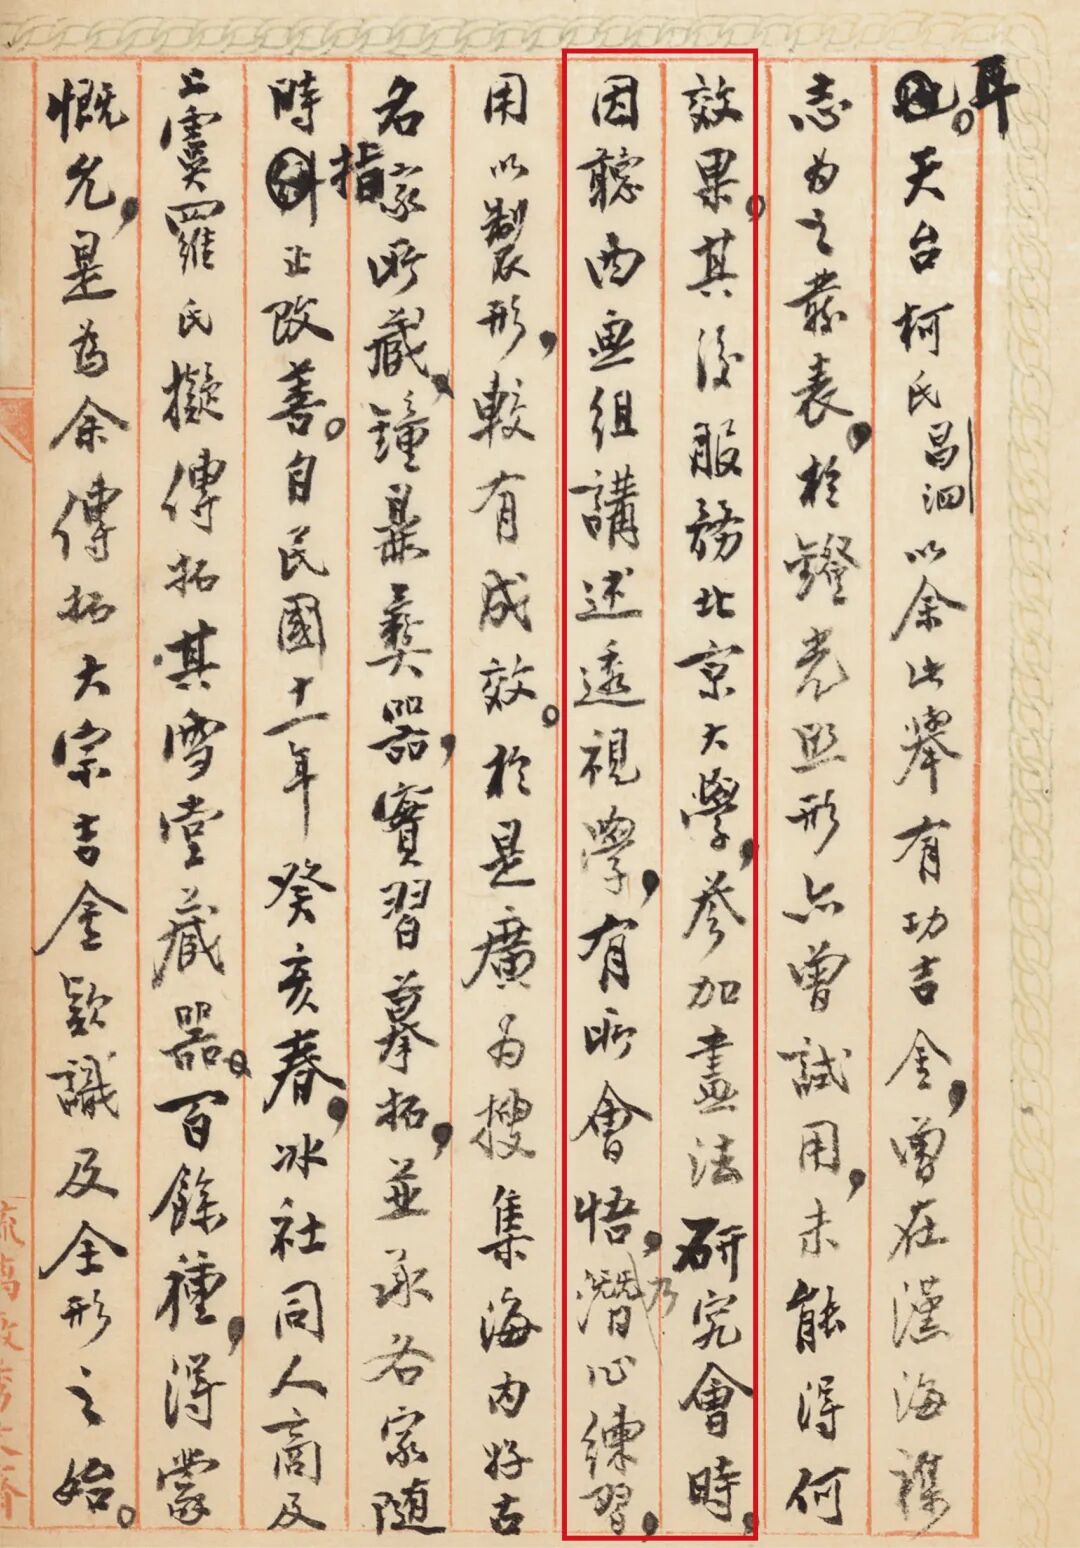 耳。天台柯氏昌泗以余此舉有功吉金，曾在漢海
志為之發表，於鐙光照形亦曾試用，未能得何
效果。其後服務北京大學，參加畫法研究會時，
因聽西畫組講述透視學，有所會悟，乃潛心練習，
用以製形，較有成效。於是廣為搜集海內好古
名家所藏，鐘鼎彝器，實習摹拓，並承名家隨
時指正改善。自民國十二年癸亥春，冰社同人商及
上虞羅氏擬傳拓其雪堂藏器百餘種，得蒙
慨允，是為余傳拓大宗吉金款識及全形之始。